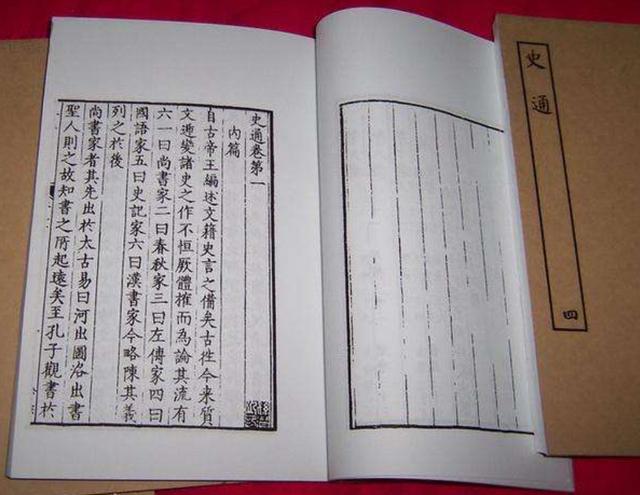 史通卷第一
內篇
自古帝王編述文籍史言之備矣古往今來質
文遞變諸史之作不恒厥體搉而為論其流有
六一曰尚書家二曰春秋家三曰左傳家四曰
國語家五曰史記家六曰漢書家今略陳其義
列之於後
尚書家者其先出於太古易曰河出圖洛出書
聖人則之故知書之所起遠矣至孔子觀書於
史通
四